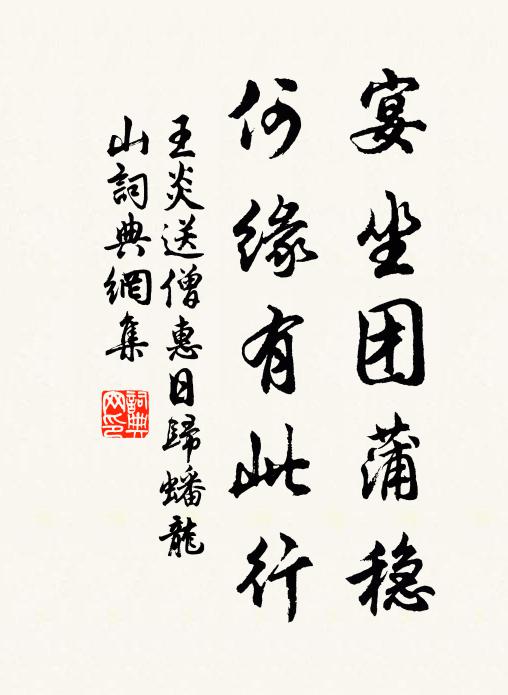 宴坐团蒲稳
何缘有此行
王炎送僧惠日歸蟠龍
山詞典網集
詞典
网印